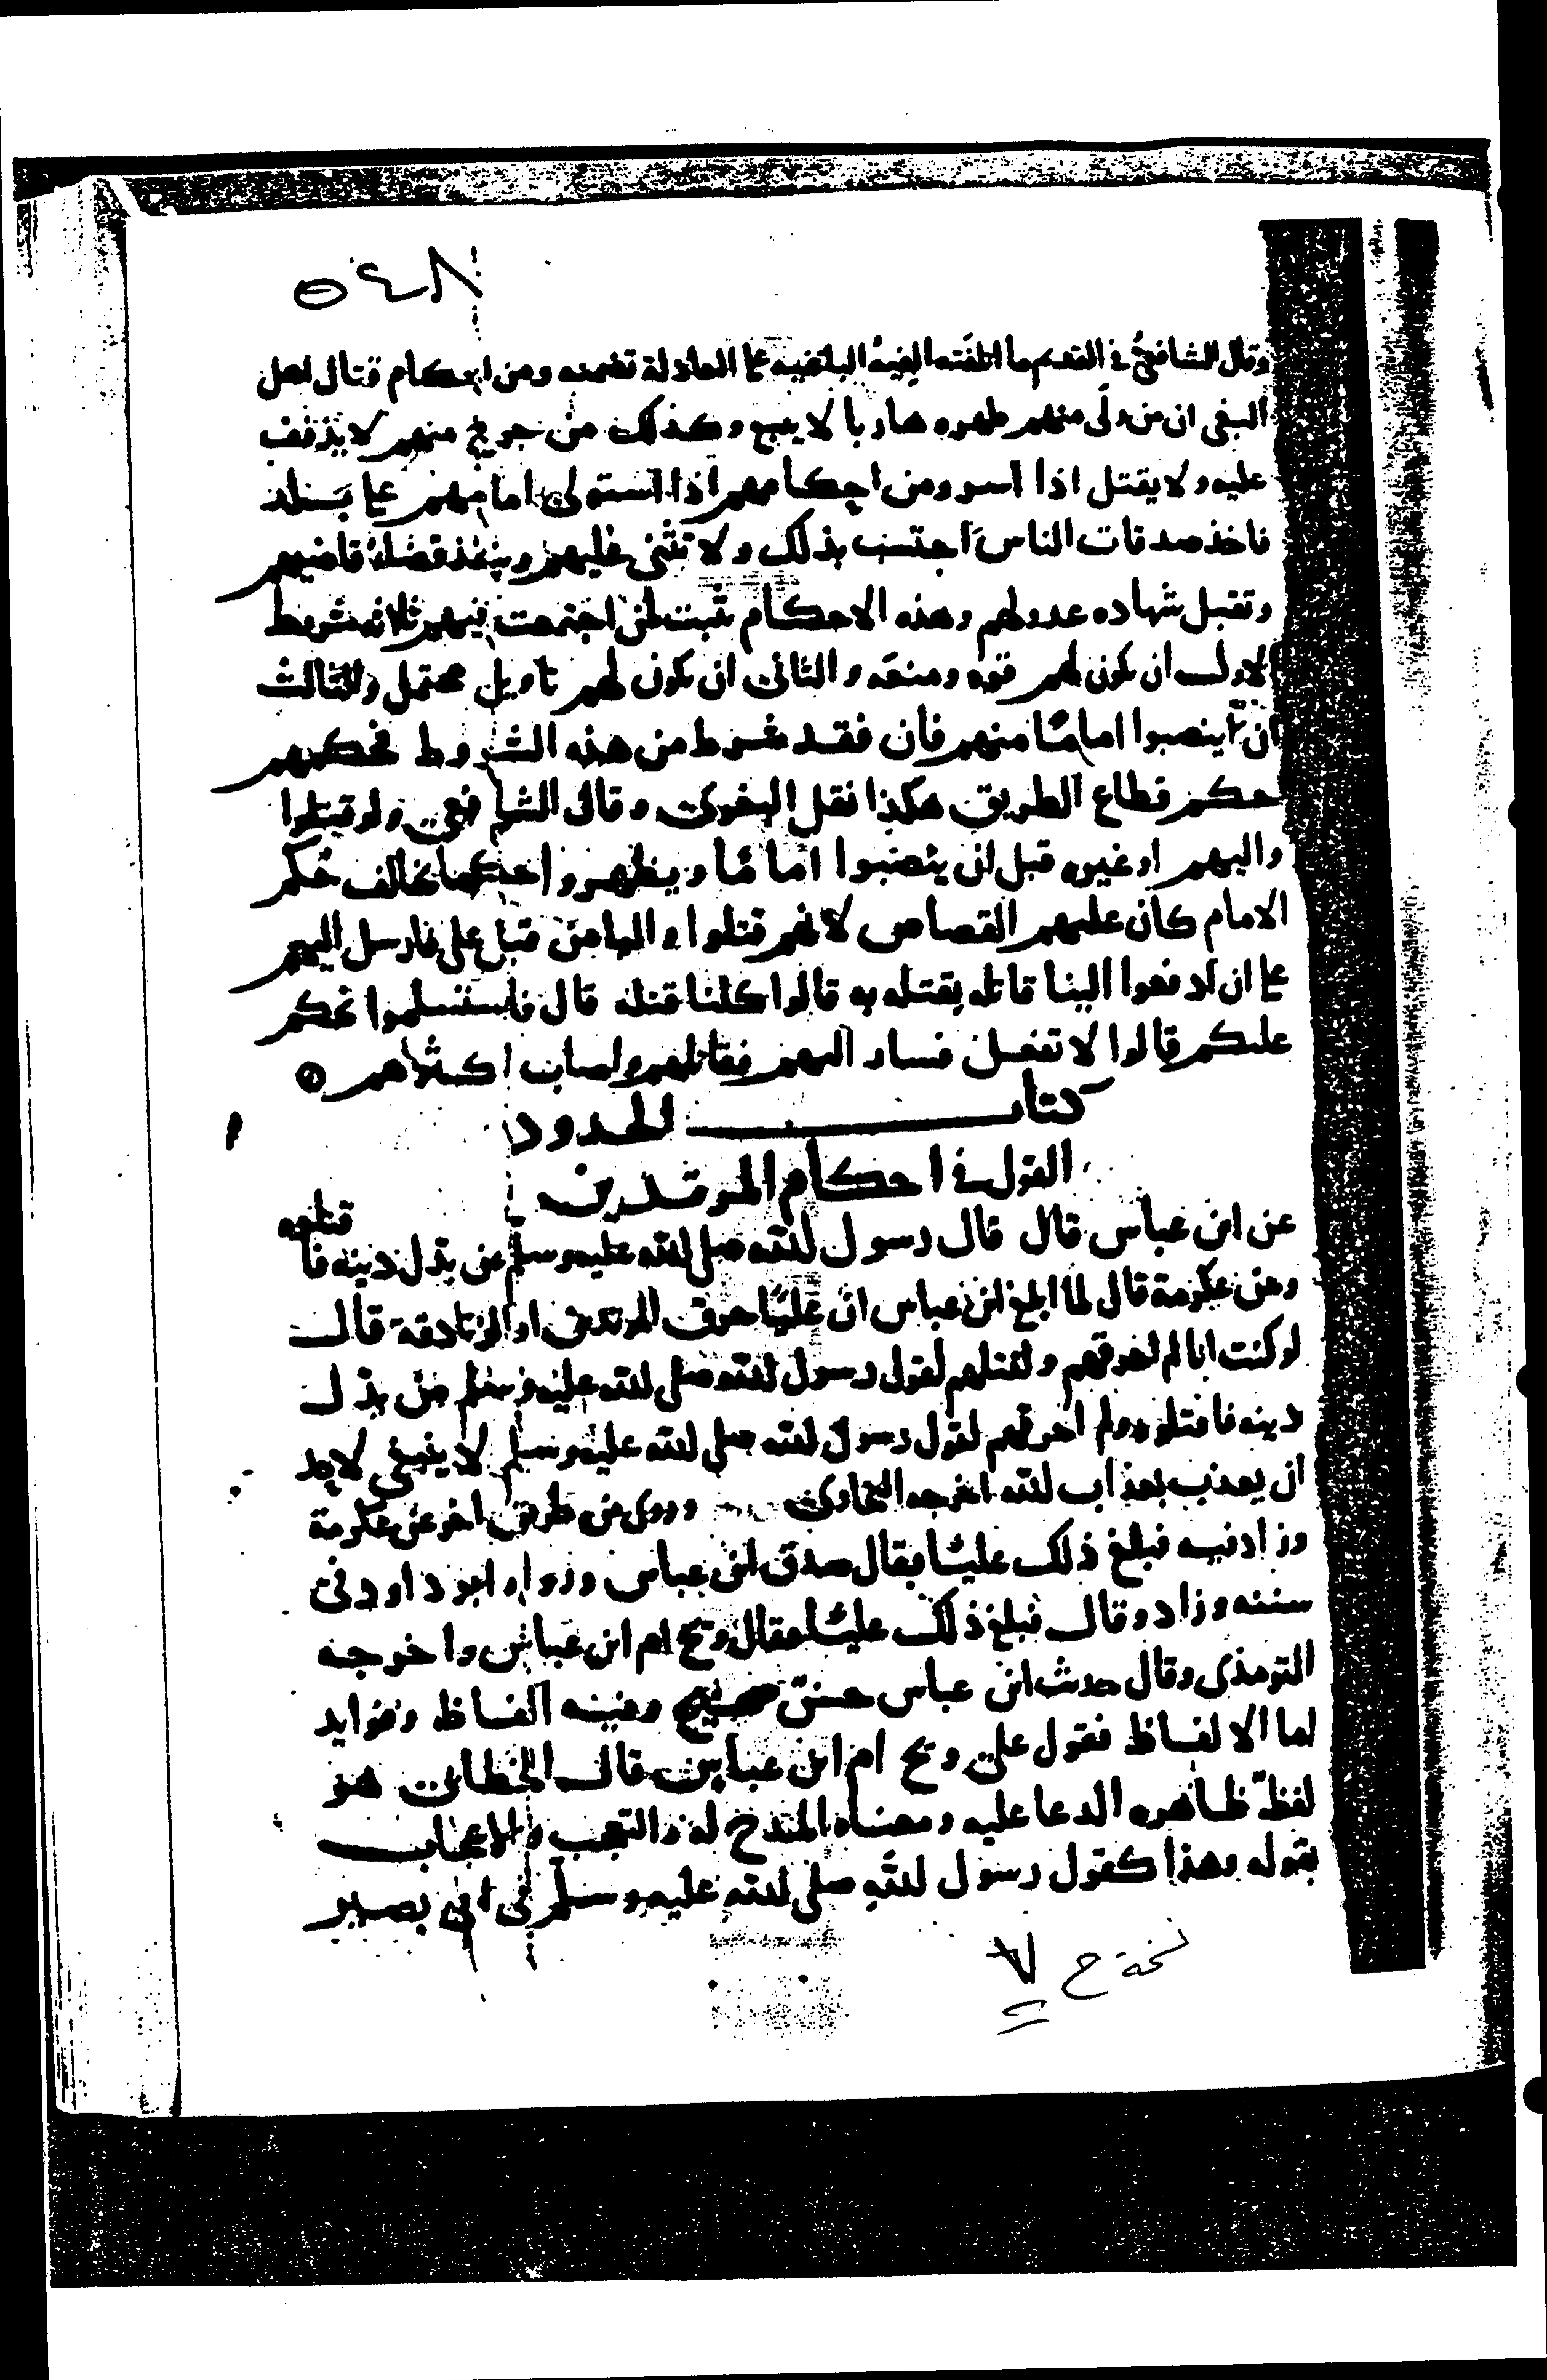 ٥٤٨
وقال الشافعي في القديم ما اتلفته الفيه الباغيه على العادلة تضمنه ومن احكام قتال اهل
البغي ان من ولى منهم ظهره هاربا لا يتبع وكذلك من جرح منهم لا يذفف
عليه ولا يقتل اذا اسر ومن احكامهم اذا استولى امامهم على بلد
فاخذ صدقات الناس احتسب بذلك ولا تثنى عليهم وينفذ قضاء قاضيهم
وتقبل شهاده عدولهم وهذه الاحكام تثبت لمن اجتمعت فيهم ثلاثه شروط
الاول ان يكون لهم قوه ومنعه والثاني ان يكون لهم تاويل محتمل والثالث
ان ينصبوا اماما منهم فان فقد شرط من هذه الشروط فحكمهم
حكم قطاع الطريق هكذا نقل البغوي وقال الشافعي ولو قتلوا
واليهم او غيره قبل ان ينصبوا اماما ويظهروا حكما يخالف حكم
الامام كان عليهم القصاص لانهم قتلوا واليا من قبل علي فارسل اليهم
على ان ادفعوا الينا قاتله يقتله به قالوا كلنا قتله قال فاستسلموا نحكم
عليكم قالوا لا نفعل فسار اليهم فقاتلهم واصاب اكثرهم
كتاب الحدود
القول في احكام المرتدين
عن ابن عباس قال قال رسول الله صلى الله عليه وسلم من بدل دينه فاقتلوه
وعن عكرمة قال لما ابلغ ابن عباس ان عليا حرق المرتدين او الزنادقة قال
لو كنت انا لم احرقهم ولقتلتهم لقول رسول الله صلى الله عليه وسلم من بدل
دينه فاقتلوه ولم احرقهم لقول رسول الله صلى الله عليه وسلم لا ينبغي لاحد
ان يعذب بعذاب الله اخرجه البخاري وروي من طريق اخر عن عكرمة
وزاد فيه فبلغ ذلك عليا فقال صدق ابن عباس ورواه ابو داود في
سننه وزاد وقال فبلغ ذلك عليا فقال ويح ام ابن عباس واخرجه
الترمذي وقال حدث ابن عباس حسن صحيح وفيه الفاظ وفوايد
اما الالفاظ فقول علي ويح ام ابن عباس قال الخطابي هو
لفظ ظاهره الدعا عليه ومعناه المدح له والتعجب والاعجاب
بقوله وهذا كقول رسول الله صلى الله عليه وسلم في ابي بصير
نسخة ح